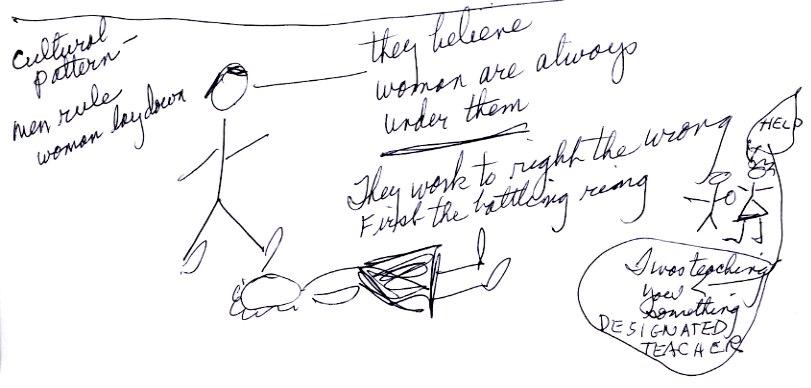 Cultural
pattern -
men rule
woman laydown
they believe
woman are always
under them
They work to right the wrong
First the battling ring
HELP
I was teaching
you
something
DESIGNATED
TEACHER